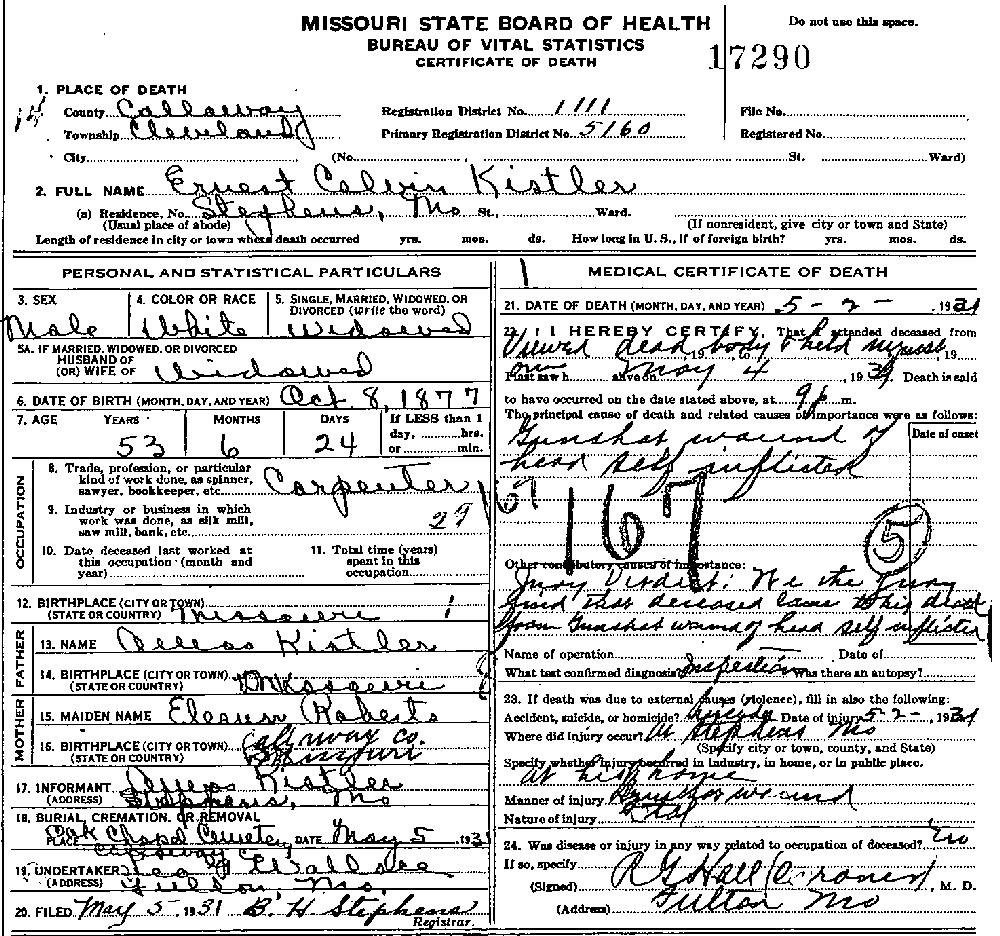 MISSOURI STATE BOARD OF HEALTH
BUREAU OF VITAL STATISTICS
CERTIFICATE OF DEATH
Do not use this space.
17290
1. PLACE OF DEATH
14
County Callaway Registration District No. 1111 File No.
Township Cleveland Primary Registration District No. 5160 Registered No.
City (No. St. Ward)
2. FULL NAME Ernest Calvin Kistler
(a) Residence, No. Stephens, Mo St., Ward.
(Usual place of abode) (If nonresident, give city or town and State)
Length of residence in city or town where death occurred yrs. mos. ds. How long in U. S., if of foreign birth? yrs. mos. ds.
PERSONAL AND STATISTICAL PARTICULARS
3. SEX 4. COLOR OR RACE 5. SINGLE, MARRIED, WIDOWED, OR DIVORCED (write the word)
Male White Widowed
5A. IF MARRIED, WIDOWED, OR DIVORCED
HUSBAND OF
(OR) WIFE OF Widowed
6. DATE OF BIRTH (MONTH, DAY, AND YEAR) Oct 8, 1877
7. AGE YEARS MONTHS DAYS If LESS than 1
day, hrs.
53 6 24 or min.
OCCUPATION
8. Trade, profession, or particular
kind of work done, as spinner,
sawyer, bookkeeper, etc. Carpenter
9. Industry or business in which
work was done, as silk mill,
saw mill, bank, etc. 29
10. Date deceased last worked at
this occupation (month and
year)
11. Total time (years)
spent in this
occupation
12. BIRTHPLACE (CITY OR TOWN)
(STATE OR COUNTRY) Missouri 1
FATHER
13. NAME Kistler
14. BIRTHPLACE (CITY OR TOWN)
(STATE OR COUNTRY) Missouri
MOTHER
15. MAIDEN NAME Roberts
16. BIRTHPLACE (CITY OR TOWN) Callaway Co.
(STATE OR COUNTRY) Missouri
17. INFORMANT Kistler
(ADDRESS) Stephens, Mo
18. BURIAL, CREMATION, OR REMOVAL
PLACE Oak Chapel Cemetery DATE May 5, 1931
19. UNDERTAKER Wallace
(ADDRESS) Fulton, Mo.
20. FILED May 5 1931 B. H. Stephens
Registrar.
MEDICAL CERTIFICATE OF DEATH
21. DATE OF DEATH (MONTH, DAY, AND YEAR) 5-2- 1931
22. I HEREBY CERTIFY, That I attended deceased from
Viewed dead body & held inquest 19 to 19
on
I last saw h alive on May 4, 1931 Death is said
to have occurred on the date stated above, at 9 p m.
The principal cause of death and related causes of importance were as follows:
Date of onset
Gunshot wound of
head self inflicted
167
167
5
Other contributory causes of importance:
Jury Verdict: We the Jury
find that deceased came to his death
from Gunshot wound of head self inflicted
Name of operation Date of
What test confirmed diagnosis? Inspection Was there an autopsy?
23. If death was due to external causes (violence), fill in also the following:
Accident, suicide, or homicide? Suicide Date of injury 5-2-, 1931
Where did injury occur? At Stephens Mo
(Specify city or town, county, and State)
Specify whether injury occurred in industry, in home, or in public place.
at his home
Manner of injury Gunshot wound
Nature of injury
24. Was disease or injury in any way related to occupation of deceased? No
If so, specify
(Signed) R G Hall (Coroner), M. D.
(Address) Fulton Mo